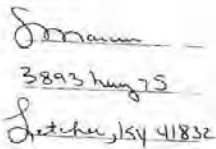 3893 hwy 7S
Letcher, Ky 41832